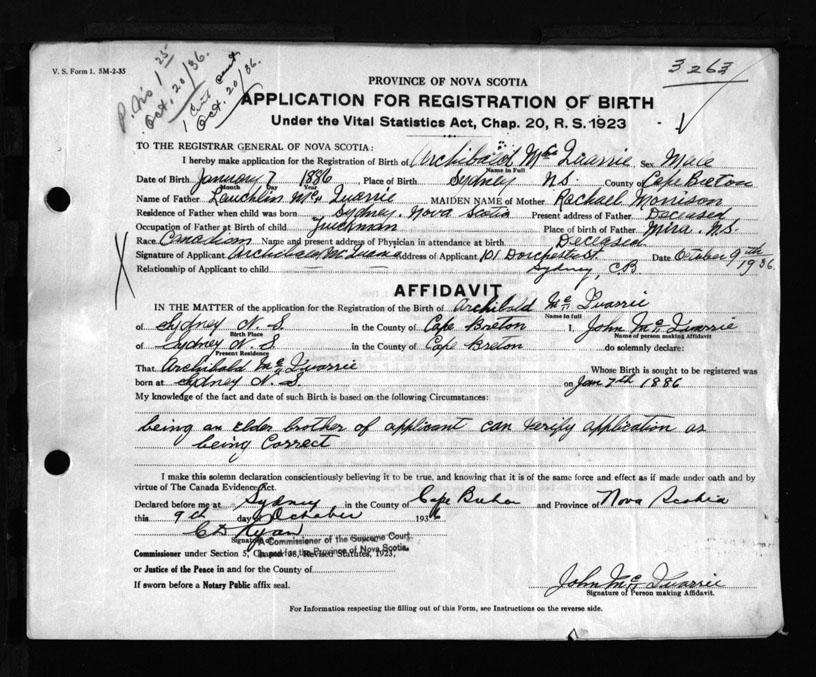 V. S. Form 1. 5M-2-35
P. No 1 25
Oct. 20/36.
Oct. 20/36.
3263
PROVINCE OF NOVA SCOTIA
APPLICATION FOR REGISTRATION OF BIRTH
Under the Vital Statistics Act, Chap. 20, R. S. 1923
TO THE REGISTRAR GENERAL OF NOVA SCOTIA:
I hereby make application for the Registration of Birth of Archibald Mc Quarrie Sex Male
Name in Full
Date of Birth January 7 1886, Place of Birth Sydney N.S. County of Cape Breton
Month Day Year
Name of Father Lauchlin Mc Quarrie MAIDEN NAME of Mother Rachael Morrison
Residence of Father when child was born Sydney, Nova Scotia Present address of Father Deceased
Occupation of Father at Birth of child Truckman Place of birth of Father Mira, N.S.
Race Canadian Name and present address of Physician in attendance at birth Deceased
Signature of Applicant Archibald Mc Quarrie Address of Applicant 101 Dorchester St Date October 9th
Relationship of Applicant to child — — Sydney, C.B 1936.
AFFIDAVIT
IN THE MATTER of the application for the Registration of the Birth of Archibald Mc Quarrie
Name in full
of Sydney N.S. in the County of Cape Breton I, John Mc Quarrie
Birth Place Name of person making Affidavit
of Sydney N.S. in the County of Cape Breton do solemnly declare:
Present Residence
That Archibald Mc Quarrie Whose Birth is sought to be registered was
born at Sydney N.S. on Jan 7th 1886
My knowledge of the fact and date of such Birth is based on the following Circumstances:
being an elder brother of applicant can verify application as
being Correct
I make this solemn declaration conscientiously believing it to be true, and knowing that it is of the same force and effect as if made under oath and by
virtue of The Canada Evidence Act.
Declared before me at Sydney in the County of Cape Breton and Province of Nova Scotia
this 9th day of October 1936
Ryan
Signature of
A Commissioner of the Supreme Court
for the Province of Nova Scotia.
Commissioner under Section 5, Chapter 38, Revised Statutes, 1923,
or Justice of the Peace in and for the County of
If sworn before a Notary Public affix seal.
John Mc Quarrie
Signature of Person making Affidavit.
For Information respecting the filling out of this Form, see Instructions on the reverse side.